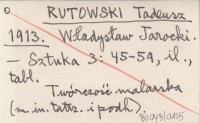 RUTOWSKI Tadeusz
1913. Władysław Jarocki.
– Sztuka 3: 45-59, il.,
tabl.
Twórczość malarska
(m.in. tatrz. i podh.).